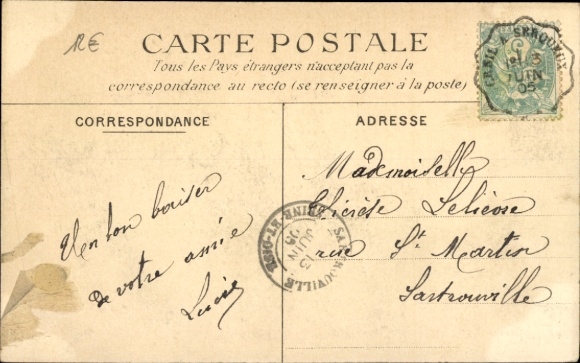 RE
CARTE POSTALE
Tous les Pays étrangers n'acceptent pas la
correspondance au recto (se renseigner à la poste)
CORRESPONDANCE
ADRESSE
Un bon baiser
de votre amie
Lucie
Mademoiselle
Thérèse
rue St Martin
Sartrouville
SARTROUVILLE
SEINE-ET-OISE
13
JUIN
05
JUIN
05